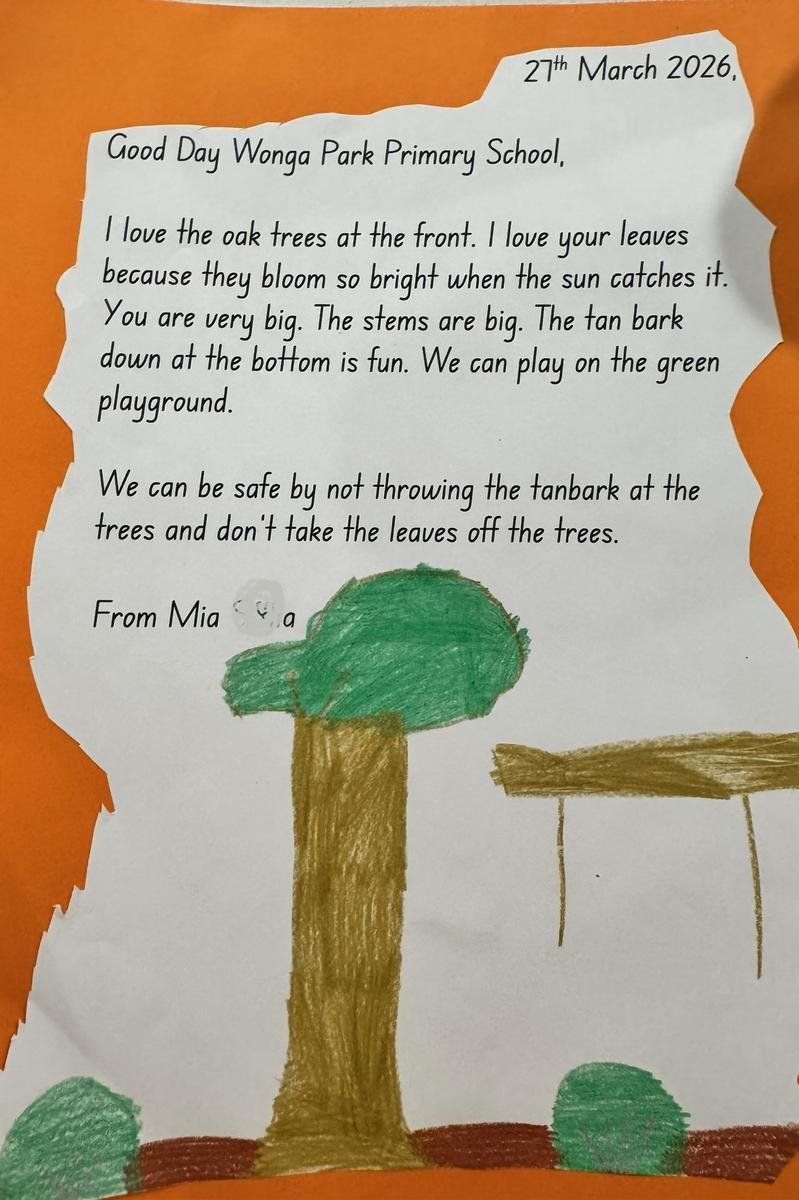 27th March 2026,
Good Day Wonga Park Primary School,
I love the oak trees at the front. I love your leaves
because they bloom so bright when the sun catches it.
You are very big. The stems are big. The tan bark
down at the bottom is fun. We can play on the green
playground.
We can be safe by not throwing the tanbark at the
trees and don't take the leaves off the trees.
From Mia